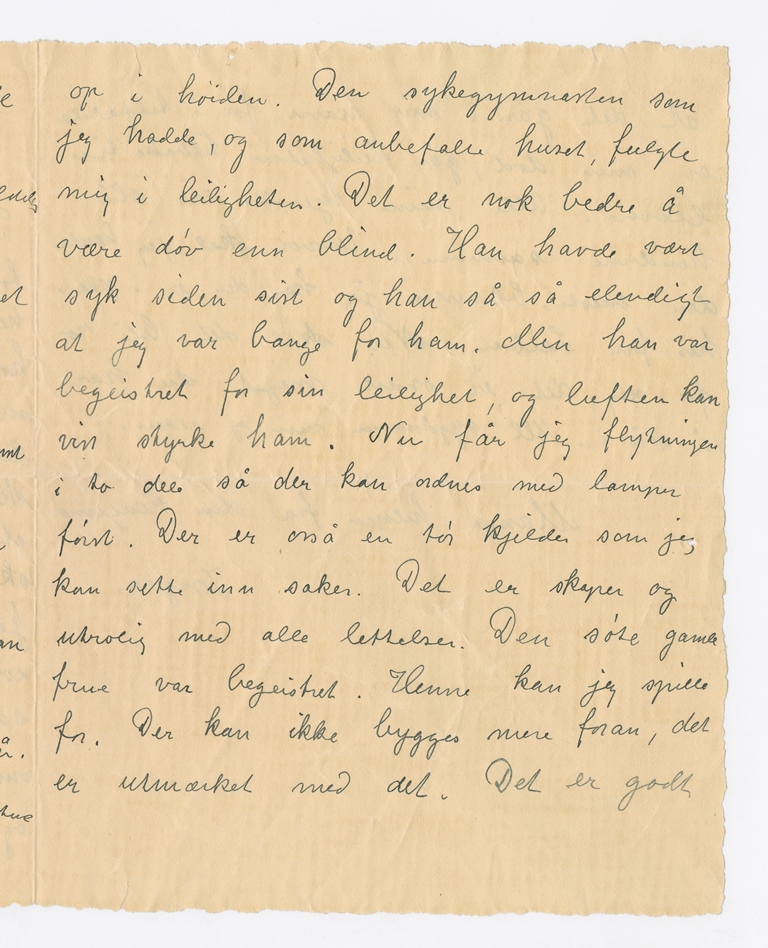 op i höiden. Den sykegymnasten som
jeg hadde, og som anbefalte huset, fulgte
mig i leiligheten. Det er nok bedre å
være döv enn blind. Han havde vært
syk siden sist og han så så elendigt
at jeg var bange for ham. Men han var
begeistret for sin leilighet, og luften kan
vist styrke ham. Nu får jeg flytningen
i to dele så der kan ordnes med lamper
först. Der er også en tör kjelder som jeg
kan sette inn saker. Det er skaper og
utrolig med alle lettelser. Den söte gamle
frue var begeistret. Henne kan jeg spille
for. Der kan ikke bygges mere foran, det
er utmærket med det. Det er godt